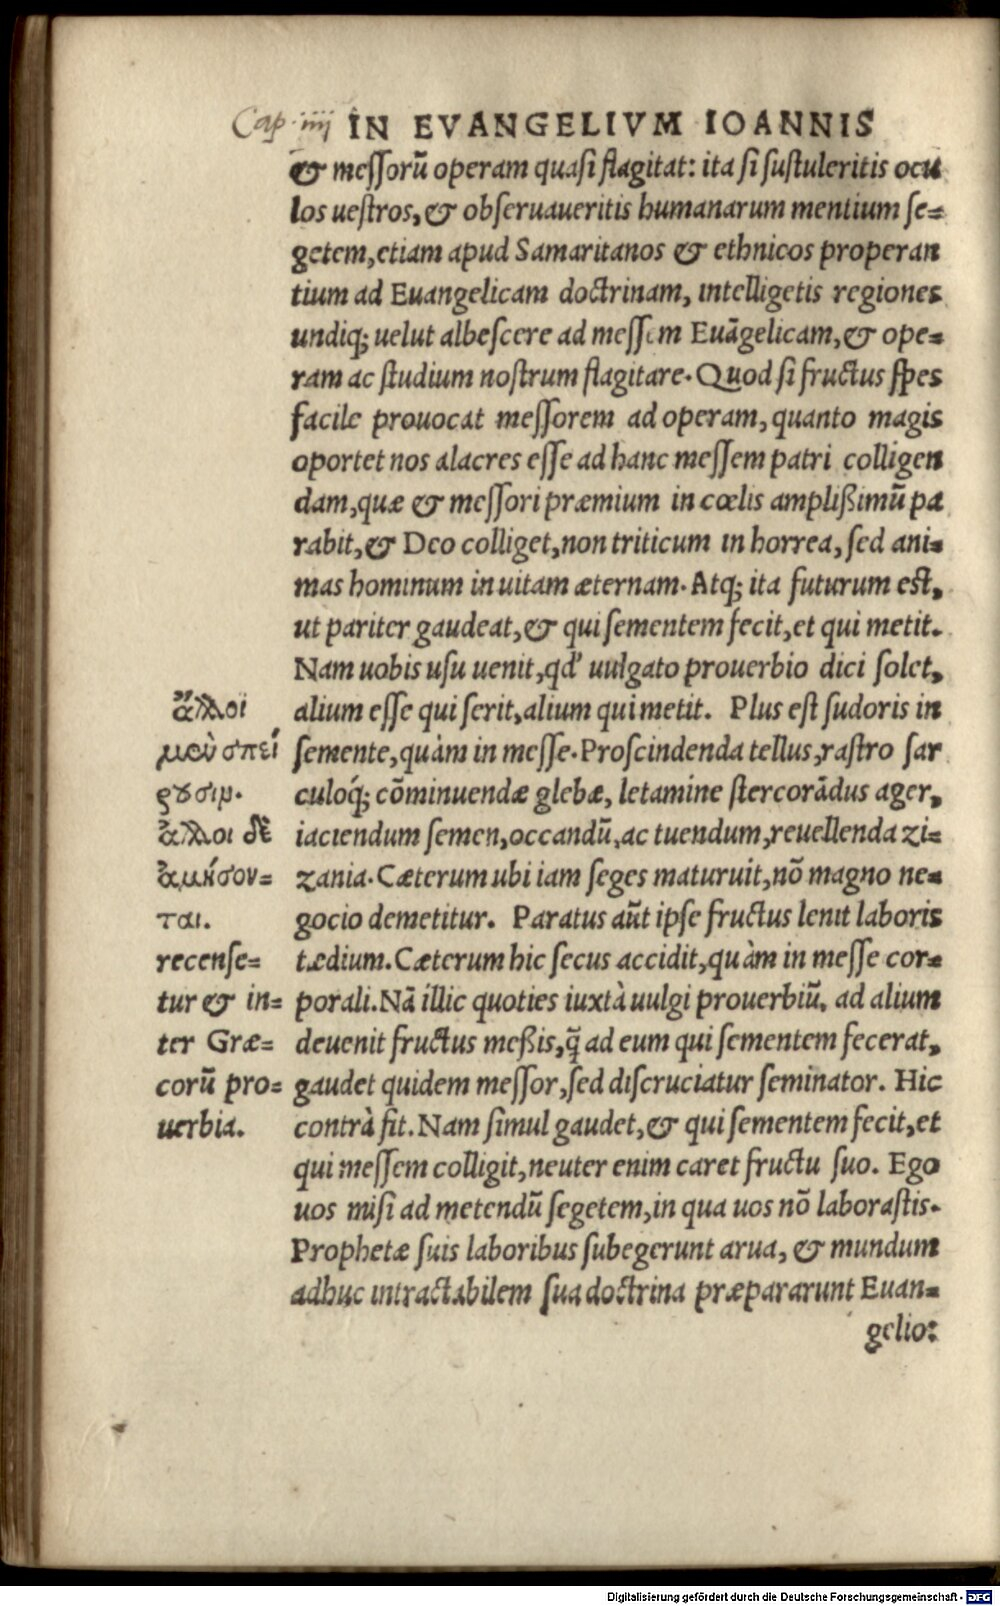 Cap. iiij IN EVANGELIVM IOANNIS
& messorū operam quasi flagitat: ita si sustuleritis ocu
los uestros, & obseruaueritis humanarum mentium se=
getem, etiam apud Samaritanos & ethnicos properan
tium ad Euangelicam doctrinam, intelligetis regiones
undiq; uelut albescere ad messem Euāgelicam, & ope=
ram ac studium nostrum flagitare. Quod si fructus spes
facile prouocat messorem ad operam, quanto magis
oportet nos alacres esse ad hanc messem patri colligen
dam, quæ & messori præmium in cœlis amplißimū pa
rabit, & Deo colliget, non triticum in horrea, sed ani=
mas hominum in uitam æternam. Atq; ita futurum est,
ut pariter gaudeat, & qui sementem fecit, et qui metit.
Nam uobis usu uenit, qd' uulgato prouerbio dici solet,
alium esse qui serit, alium qui metit. Plus est sudoris in
semente, quàm in messe. Proscindenda tellus, rastro sar
culoq́; cōminuendæ glebæ, letamine stercorādus ager,
iaciendum semen, occandū, ac tuendum, reuellenda zi=
zania. Cæterum ubi iam seges maturuit, nō magno ne=
gocio demetitur. Paratus aūt ipse fructus lenit laboris
tædium. Cæterum hic secus accidit, quàm in messe cor=
porali. Nā illic quoties iuxtà uulgi prouerbiū, ad alium
deuenit fructus meßis, q̄ ad eum qui sementem fecerat,
gaudet quidem messor, sed discruciatur seminator. Hic
contrà fit. Nam simul gaudet, & qui sementem fecit, et
qui messem colligit, neuter enim caret fructu suo. Ego
uos misi ad metendū segetem, in qua uos nō laborastis.
Prophetæ suis laboribus subegerunt arua, & mundum
adhuc intractabilem sua doctrina præpararunt Euan=
gelio:
ἄλλοι
μεὺ σπεί
ρουσιμ.
ἄλλοι δὲ
ἀμήσον=
ται.
recense=
tur & in=
ter Græ=
corū pro=
uerbia.
Digitalisierung gefördert durch die Deutsche Forschungsgemeinschaft - DFG